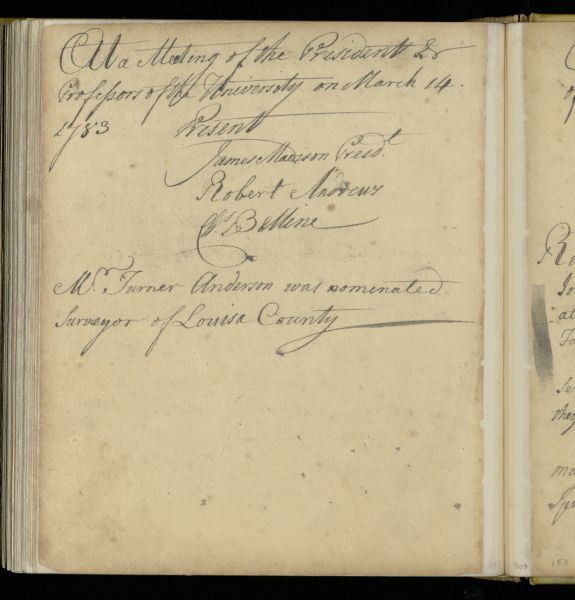 At a Meeting of the President &
Professors of the University on March 14.
1783 Present
James Madison Presd.t
Robert Andrews
Cs. Belline
Mr. Turner Anderson was nominated
Surveyor of Louisa County